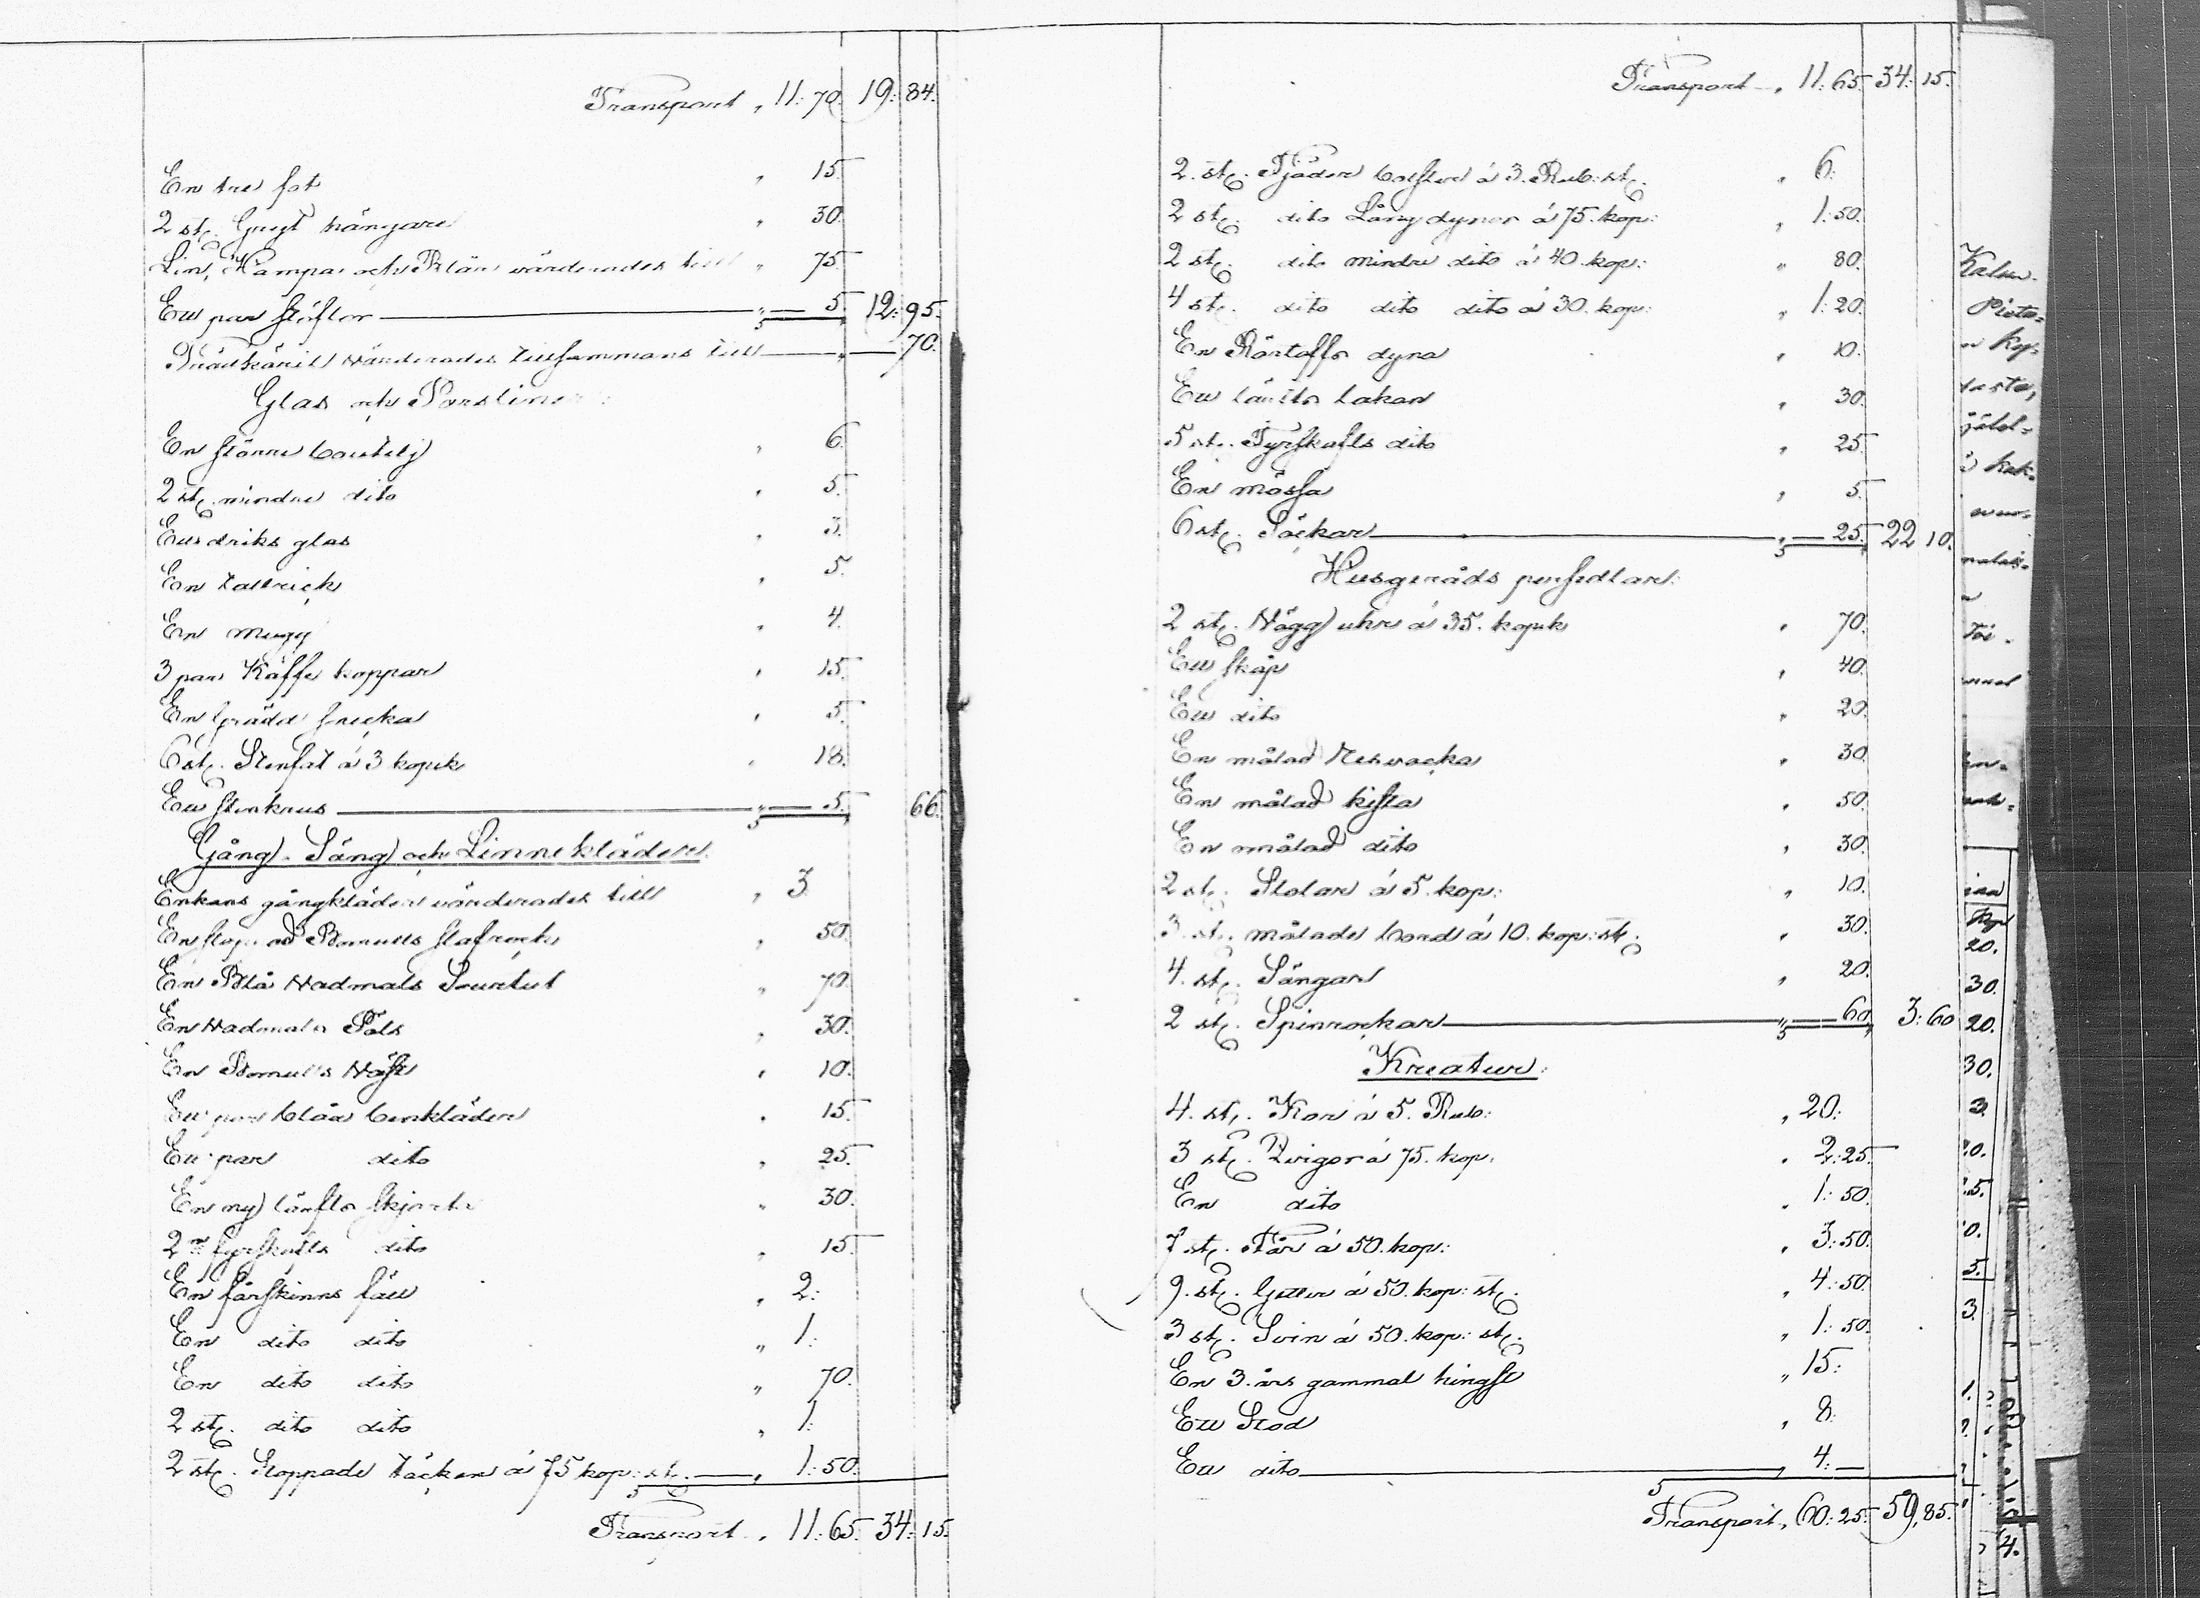 Transport „ 11: 70. 19: 84.
En tre fat „ 15.
2 st. Gryt hängare „ 30.
Lin, Hampa och Blån värderades till „ 75.
Ett par stöflor „ 5. 12: 95.
Trädkäril värderades tillsammans till „ 70.
Glas och Porslin:
En större boutelj „ 6.
2 st. mindre dito „ 5.
Ett driks glas „ 3.
En tallrick „ 5.
En mugg „ 4.
3 par Kaffe koppar „ 15.
En grädd snecka „ 5.
6 st. Stenfat á 3 kopek „ 18.
Ett stenkrus „ 5. 66.
Gång- Säng och Linnekläder.
Enkans gångkläder värderades till „ 3.
En stoppad Bomulls slafrock „ 50.
En Blå Wadmals Sourtut „ 70.
En Wadmals Päls „ 30.
En Bomulls Wäst „ 10.
Ett par blåa benkläder „ 15.
Ett par dito „ 25.
En ny lärfts skjorta „ 30.
2 st fyrskafts dito „ 15.
En fårskinns fäll „ 2:
En dito dito „ 1:
En dito dito „ 70.
2 st. dito dito „ 1:
2 st. Stoppade täcken á 75 kop: st. „ 1: 50.
Transport „ 11: 65. 34: 15.
Transport „ 11: 65. 34: 15.
2. st. Fjäder bolster á 3. Rub: st. „ 6:
2 st. dito Långdynor á 75. kop: „ 1: 50.
2 st. dito mindre dito á 40. kop: „ 80.
4 st. dito dito dito á 30. kop: „ 1: 20.
En dyna „ 10.
Ett lärfts Lakan „ 30.
5 st. Fyrskafts dito „ 25.
En mössa „ 5.
6 st. Säckar „ 25. 22 10.
Husgeråds persedlar:
2 st. Wägg uhr á 35. kopek „ 70.
Ett skåp „ 40.
Ett dito „ 20.
En målad „ 30.
En målad kista „ 50.
En målad dito „ 30.
2 st. Stolar á 5. kop: „ 10.
3. st. målade bord á 10. kop: st. „ 30.
4. st. Sängar „ 20.
2 st. Spinrockar „ 60. 3: 60
Kreatur:
4. st. Kor á 5. Rub: „ 20:
3 st. Qvigor á 75. kop. „ 2: 25.
En dito „ 1: 50.
7 st. Får á 50. kop: „ 3: 50.
9. st. Getter á 50. kop: st. „ 4: 50.
3 st. Svin á 50. kop: st. „ 1: 50.
En 3. års gammal hingst „ 15:
Ett Stod „ 8:
Ett dito „ 4:
Transport, 60: 25. 59, 85.